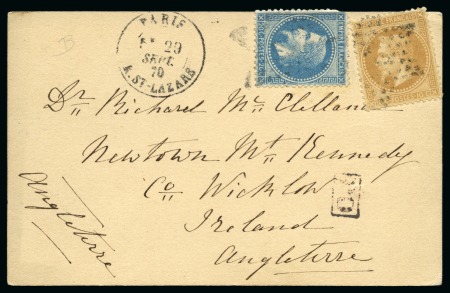 PARIS
29
SEPT.
70
R. ST-LAZARE
Dr. Richard Mc Clelland
Newtown Mt Kennedy
Co Wicklow
Ireland
Angleterre
Angleterre